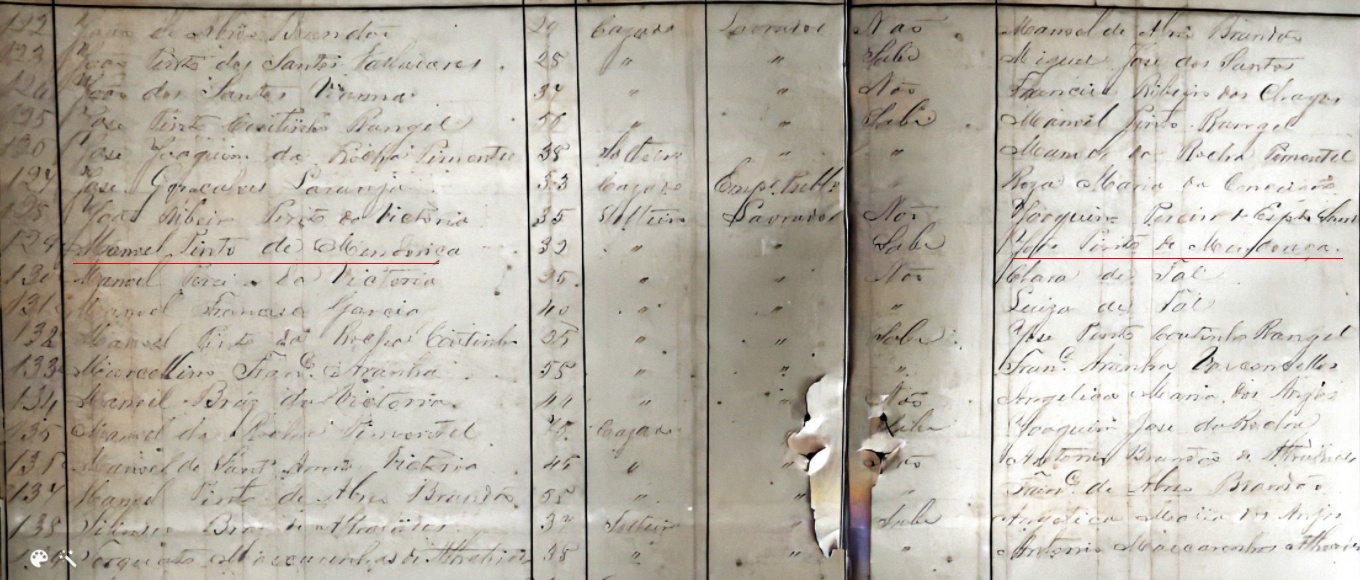 122 João de Abreu Brandão 29 Cazado Lavrador Não Manoel de Abreu Brandão
123 João Pinto dos Santos 28 " " Sabe Miguel José dos Santos
124 João dos Santos Vianna 37 " " Não Francisco Ribeiro das Chagas
125 José Pinto Coutinho Rangel 50 " " Sabe Manoel Pinto Rangel
126 José Joaquim da Rocha Pimentel 38 Solteiro " " da Rocha Pimentel
127 José Gonçalves Laranja 53 Cazado Emp. Publ. " Roza Maria da Conceição
128 João Ribeiro Pinto da Victoria 35 Solteiro Lavrador Não Joaquim Pereira do
129 Manoel Pinto de Mendonça 32 " " Sabe José Pinto de Mendonça
130 Manoel da Victoria 25 " " Não Clara de Tal
131 Manoel Francisco Garcia 40 " " " Luiza de Tal
132 Manoel Pinto da Rocha Coutinho 25 " " Sabe José Pinto Coutinho Rangel
133 Marcellino Franc.º Aranha 55 " " " Franc.º Aranha Vasconcellos
134 Manoel Braz da Victoria 44 " " Não Angelica Maria dos Anjos
135 Manoel da Rocha Pimentel Cazado Sabe Joaquim José da Rocha
136 Manoel de Sant'Anna Victoria 45 " Não Antonio Brandão de
137 Manoel Pinto de Abreu Brandão 55 " " " Franc.º de Abreu Brandão
138 Braz de 37 Solteiro " Sabe Angelica Maria dos Anjos
Torquato Mascarenhas de 38 " " " Antonio Mascarenhas